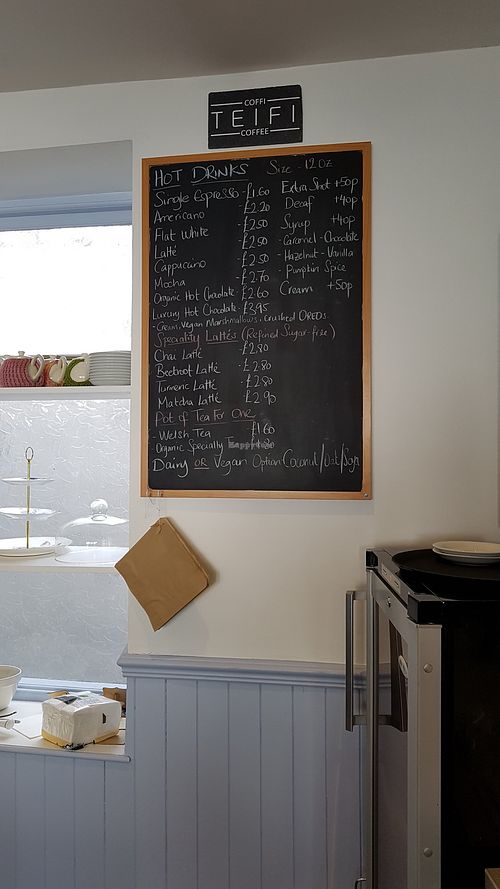 COFFI
TEIFI
COFFEE
HOT DRINKS Size - 12oz
Single Espresso - £1.60
Americano - £2.20
Flat White - £2.50
Latté - £2.50
Cappuccino - £2.50
Mocha - £2.70
Organic Hot Chocolate - £2.60
Luxury Hot Chocolate - £3.95
- Cream, Vegan Marshmallows, crushed OREOs
Extra Shot +50p
Decaf +40p
Syrup +40p
- Caramel - Chocolate
- Hazelnut - Vanilla
- Pumpkin Spice
Cream +50p
Speciality Lattés (Refined Sugar-free)
Chai Latté - £2.80
Beetroot Latté - £2.80
Turmeric Latté - £2.80
Matcha Latté - £2.90
Pot of Tea For One
- Welsh Tea £1.60
Organic Specialty
Dairy OR Vegan Option Coconut/Oat/Soya